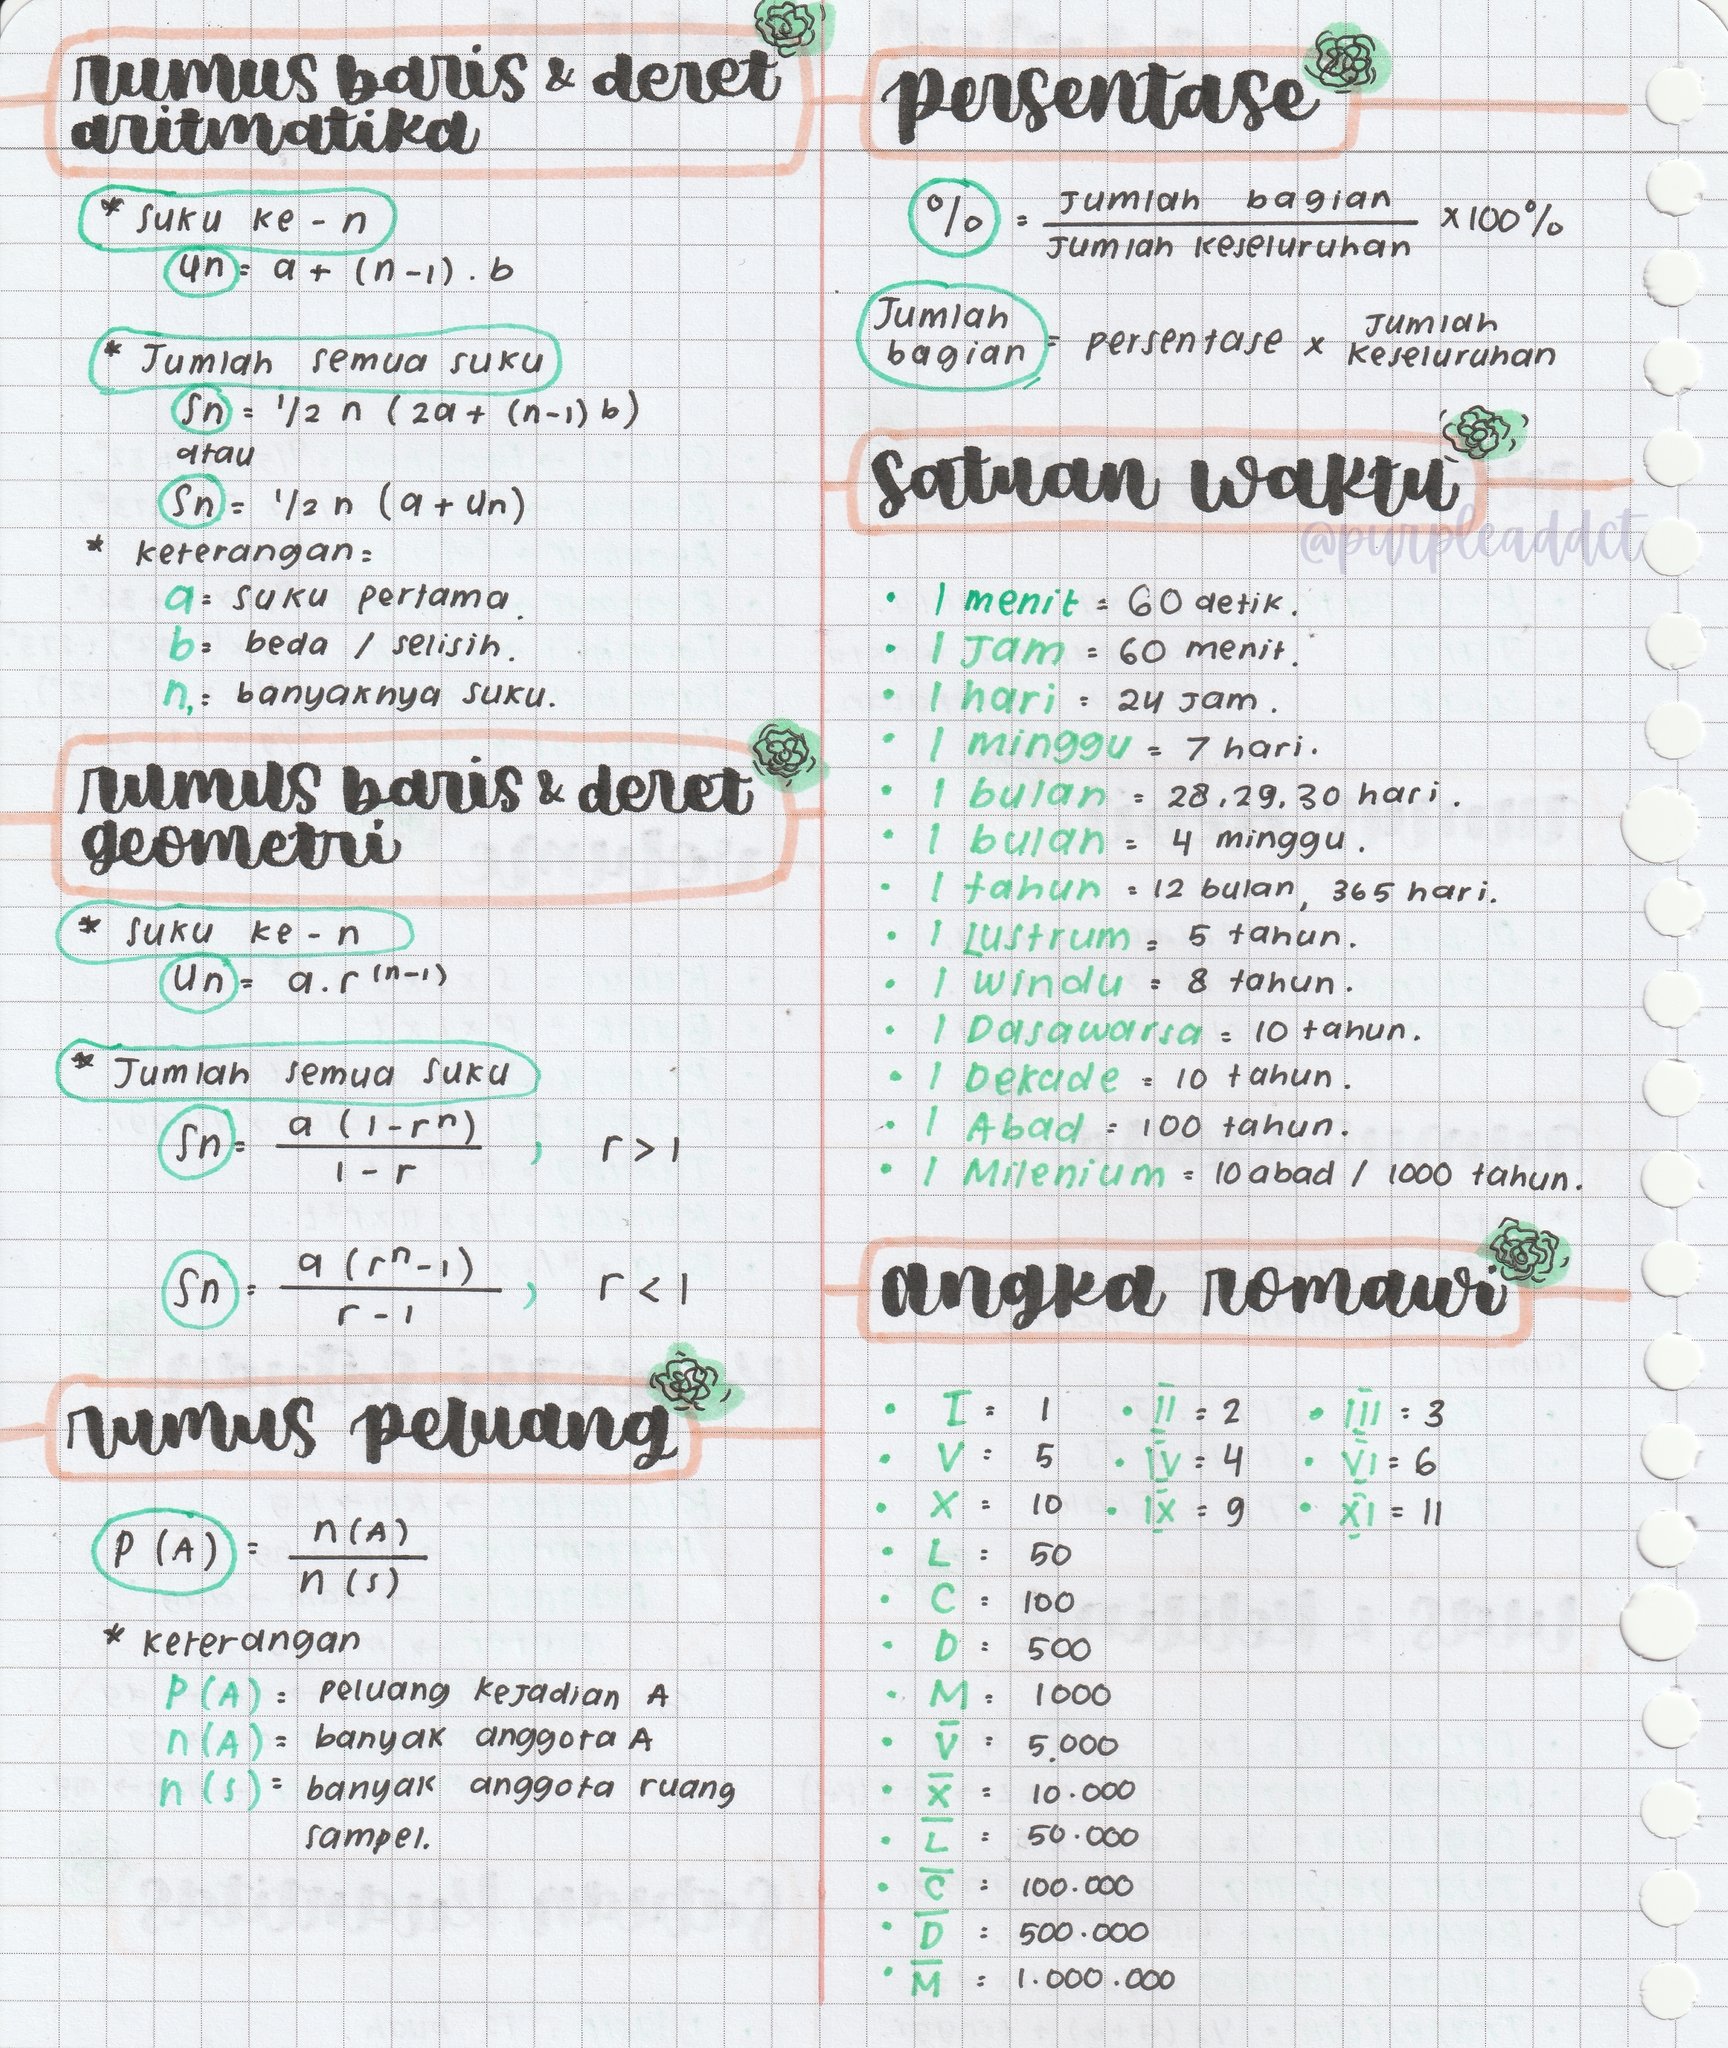 rumus baris & deret
aritmatika
* suku ke - n
Un = a + (n-1) . b
* Jumlah semua suku
Sn = 1/2 n (2a + (n-1) b)
atau
Sn = 1/2 n (a + Un)
* keterangan =
a = suku pertama.
b = beda / selisih.
n = banyaknya suku.
rumus baris & deret
geometri
* suku ke - n
Un = a . r^(n-1)
* Jumlah semua suku
Sn = a (1 - r^n) / 1 - r , r > 1
Sn = a (r^n - 1) / r - 1 , r < 1
rumus peluang
P (A) = n (A) / n (s)
* keterangan
P (A) = peluang kejadian A
n (A) = banyak anggota A
n (s) = banyak anggota ruang
sampel.
persentase
% = Jumlah bagian / Jumlah keseluruhan x 100%
Jumlah bagian = persentase x Jumlah keseluruhan
satuan waktu
@purpleaddct
• 1 menit = 60 detik.
• 1 Jam = 60 menit.
• 1 hari = 24 Jam.
• 1 minggu = 7 hari.
• 1 bulan = 28, 29, 30 hari.
• 1 bulan = 4 minggu.
• 1 tahun = 12 bulan, 365 hari.
• 1 Lustrum = 5 tahun.
• 1 Windu = 8 tahun.
• 1 Dasawarsa = 10 tahun.
• 1 Dekade = 10 tahun.
• 1 Abad = 100 tahun.
• 1 Milenium = 10 abad / 1000 tahun.
angka romawi
• I = 1 • II = 2 • III = 3
• V = 5 • IV = 4 • VI = 6
• X = 10 • IX = 9 • XI = 11
• L = 50
• C = 100
• D = 500
• M = 1000
• V̅ = 5.000
• X̅ = 10.000
• L̅ = 50.000
• C̅ = 100.000
• D̅ = 500.000
• M̅ = 1.000.000